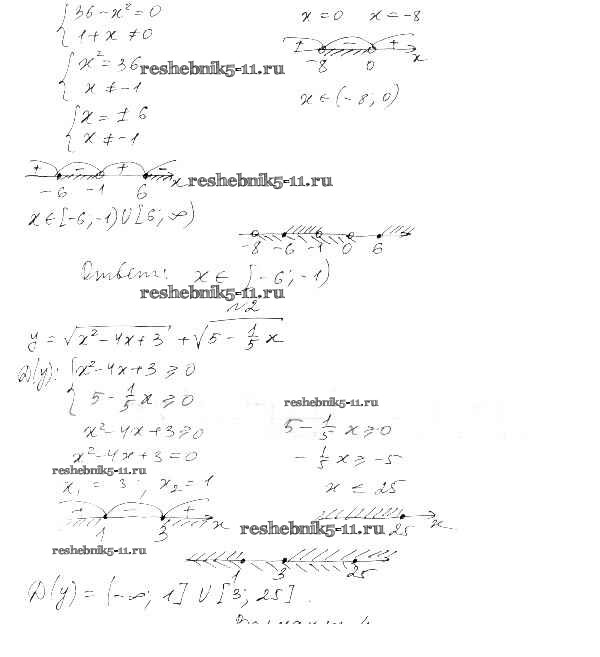 {36-x²=0    x=0  x=-8
{1+x≠0    + - +
-8  0  x
{x²=36  reshebnik5-11.ru
{x≠-1    x∈(-8; 0)
{x=±6
{x≠-1
+ - + -
-6  -1  6  x  reshebnik5-11.ru
x∈[-6,-1)∪[6; ∞)
-8  -6  -1  0  6
Ответ: x∈[-6; -1)
reshebnik5-11.ru
№2
y=√(x²-4x+3) + √(5-1/5 x)
D(y): {x²-4x+3⩾0
{5-1/5 x⩾0    reshebnik5-11.ru
x²-4x+3⩾0    5-1/5 x⩾0
x²-4x+3=0    -1/5 x⩾-5
reshebnik5-11.ru
x₁=3; x₂=1    x≤25
+ - +
1  3  x  reshebnik5-11.ru  25  x
reshebnik5-11.ru
1  3  25
D(y)=(-∞; 1]∪[3; 25].